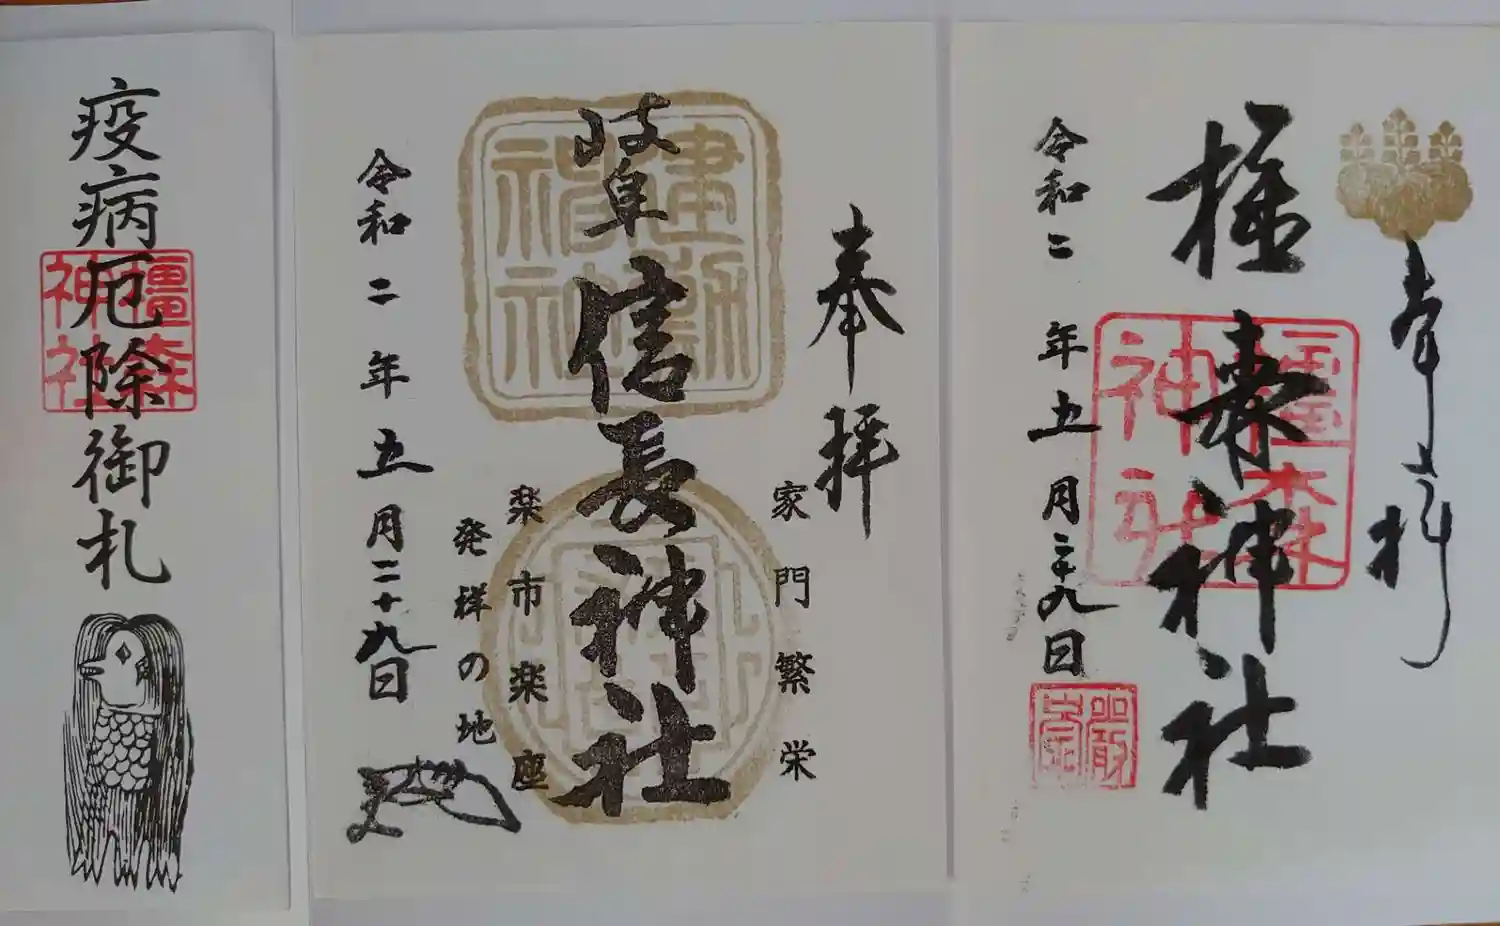 奉拝
橿森神社
令和二年五月二十九日
橿森神社
奉拝
家門繁栄
岐阜信長神社
建勲神社
楽市楽座
発祥の地
令和二年五月二十九日
疫病厄除御札
橿森神社